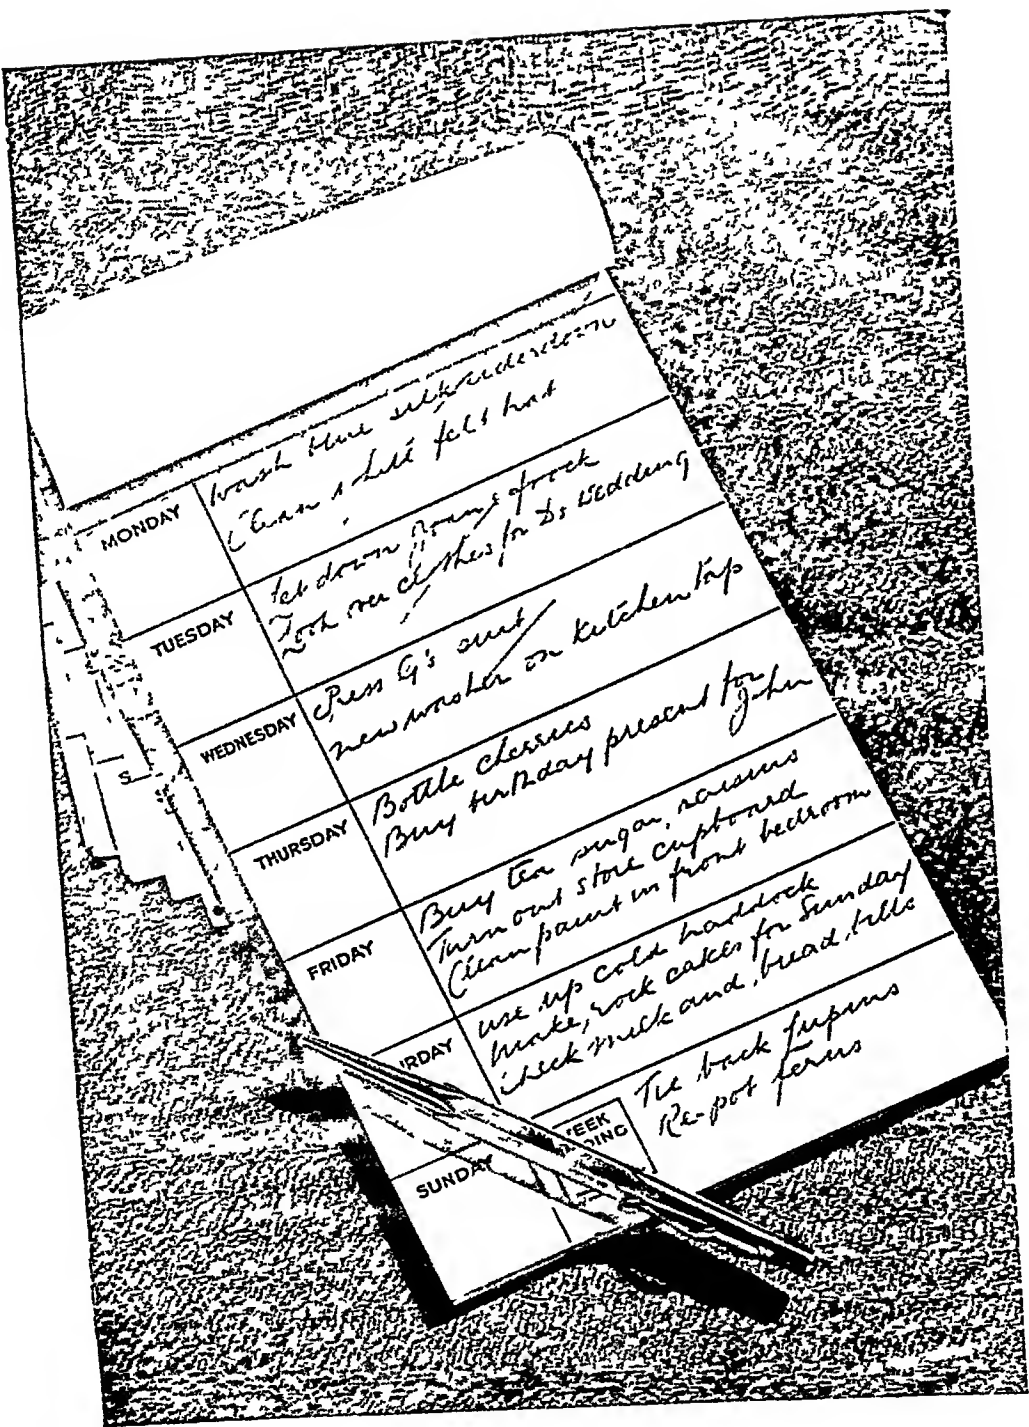 MONDAY
Wash blue silk eiderdown
Clean white felt hat
TUESDAY
Let down frock
Look over clothes for D's Wedding
WEDNESDAY
Press G's suit
new washer on kitchen tap
THURSDAY
Bottle cherries
Buy birthday present for
John
FRIDAY
Buy tea, sugar, raisins
Turn out store cupboard
Clean paint in front bedroom
URDAY
use up cold haddock
make rock cakes for Sunday
check milk and bread bills
SUNDAY
WEEK
ENDING
Tie back lupins
Re-pot ferns
S